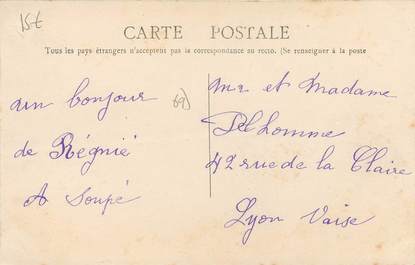 15€
CARTE POSTALE
Tous les pays étrangers n'acceptent pas la correspondance au recto. (Se renseigner à la poste
un bonjour
de Régnié
A Soupé
69)
Mr et Madame
Pelhomme
42 rue de la Claire
Lyon Vaise